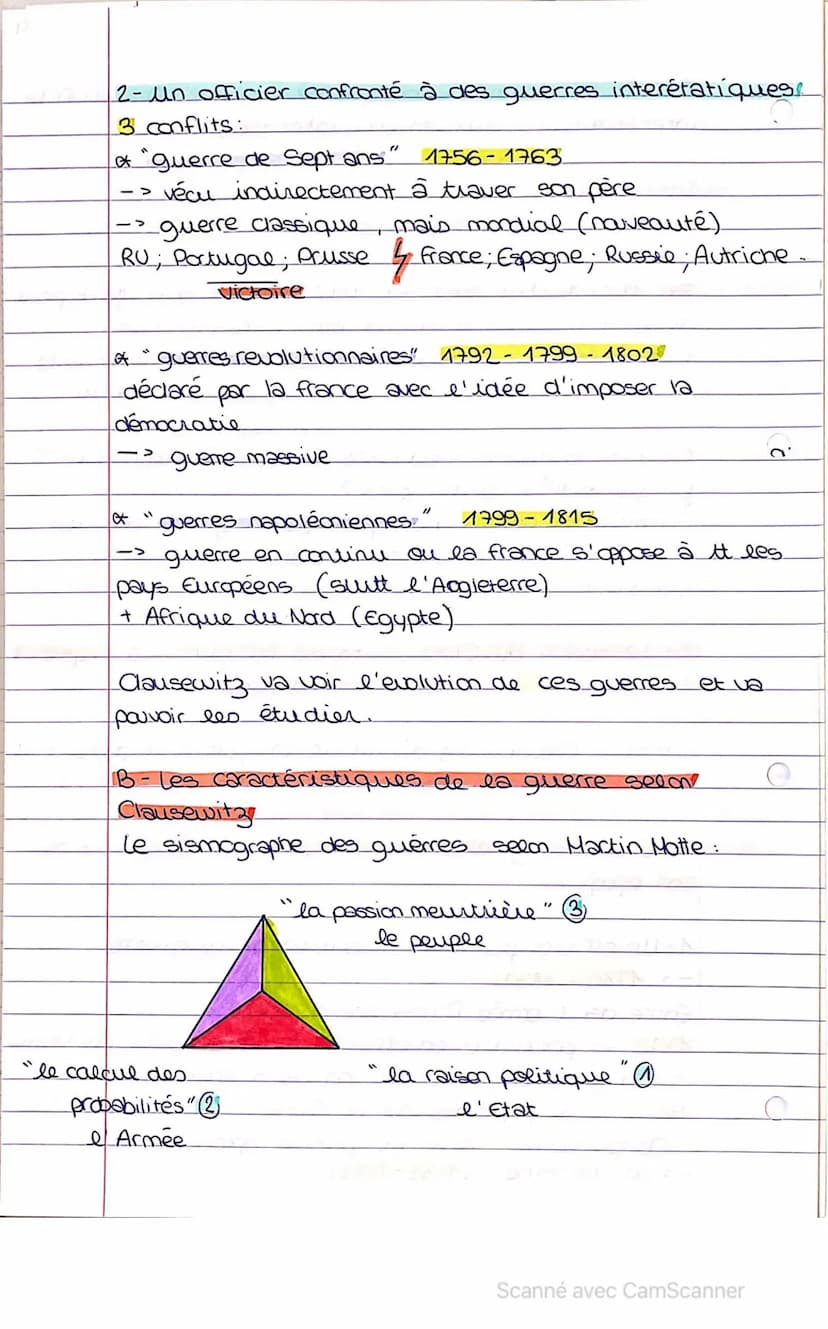 2- Un officier confronté à des guerres interétatiques
3 conflits:
* "guerre de Sept ans" 1756 - 1763
-> vécu indirectement à traver son père
-> guerre classique, mais mondial (nouveauté)
RU; Portugal; Prusse ⚡ France; Espagne; Russie; Autriche.
victoire
* "guerres revolutionnaires" 1792 - 1799 - 1802
déclaré par la france avec l'idée d'imposer la
démocratie
-> guerre massive
* "guerres napoléoniennes" 1799 - 1815
-> guerre en continu ou la france s'oppose à tt les
pays Européens (surtt l'Angleterre)
+ Afrique du Nord (Egypte)
Clausewitz va voir l'evolution de ces guerres et va
pouvoir les étudier.
B - Les caractéristiques de la guerre selon
Clausewitz
Le sismographe des guérres selon Martin Motte:
"la passion meurtrière" ③
le peuple
"le calcul des
probabilités" ②
l'Armée
"la raison politique" ①
l'Etat
Scanné avec CamScanner